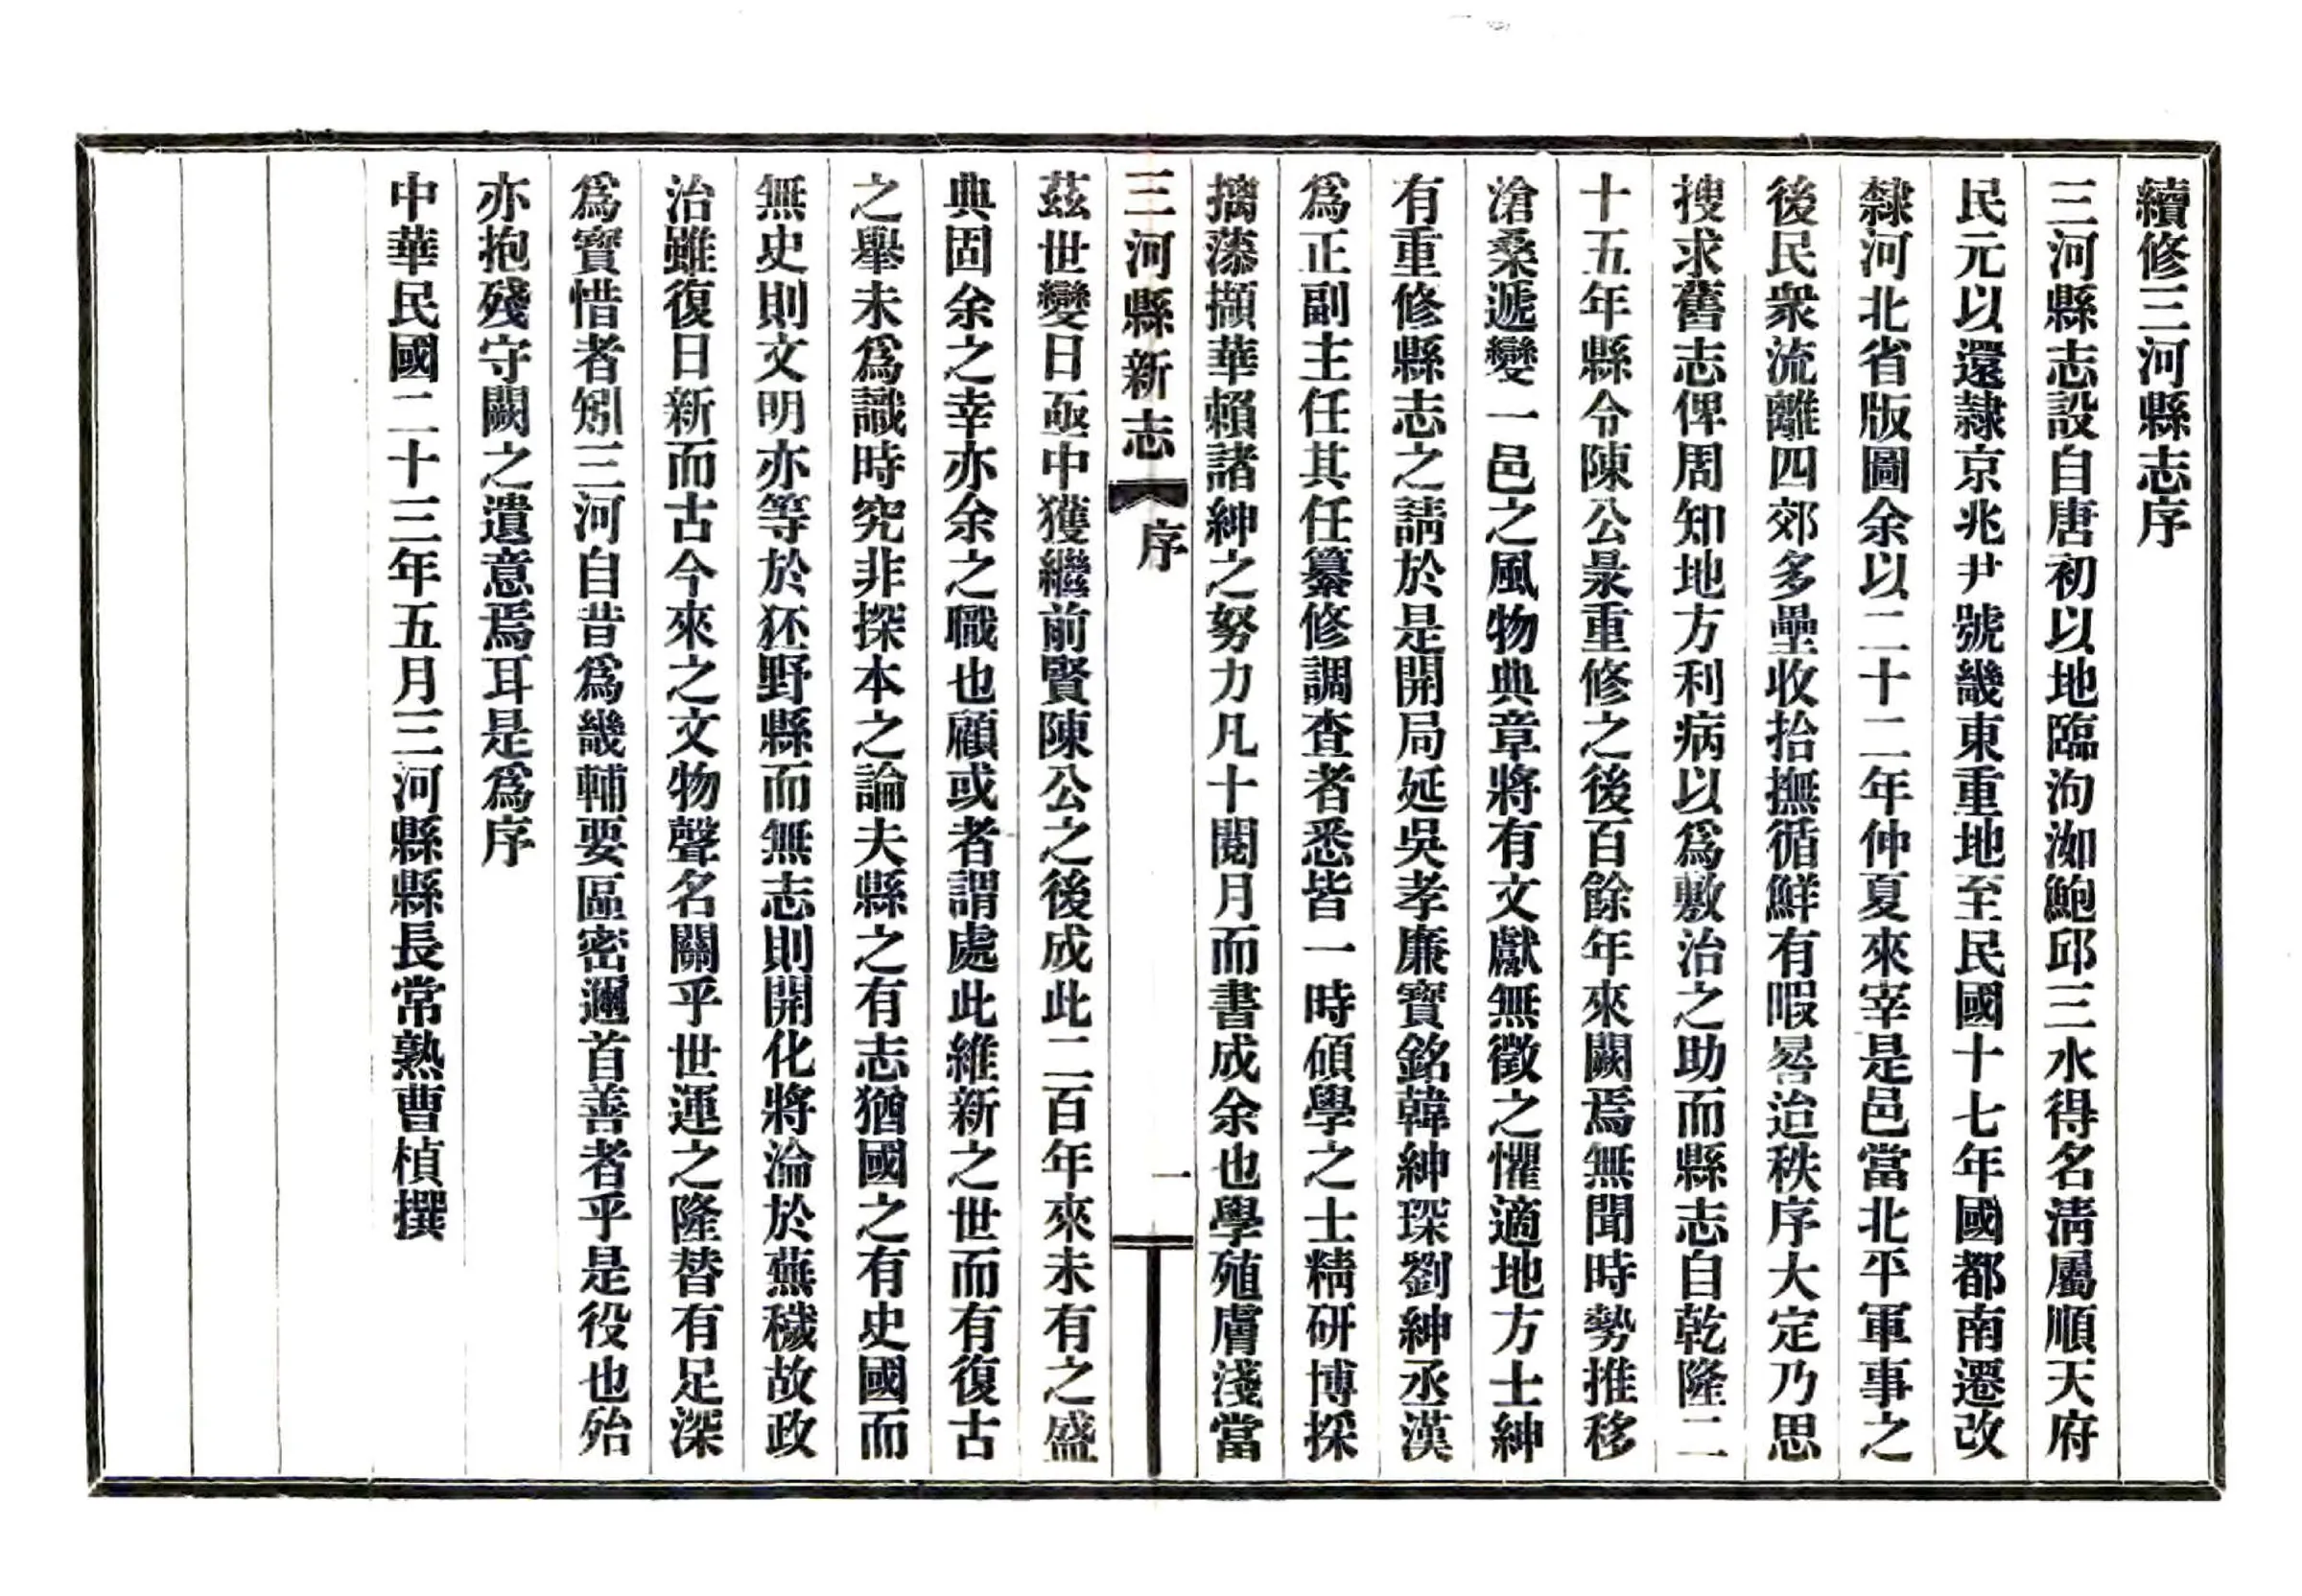 續修三河縣志序
三河縣志設自唐初以地臨泃洳鮑邱三水得名淸屬順天府
民元以還隸京兆尹號畿東重地至民國十七年國都南遷改
隸河北省版圖余以二十二年仲夏來宰是邑當北平軍事之
後民衆流離四郊多壘收拾撫循鮮有暇晷迨秩序大定乃思
搜求舊志俾周知地方利病以爲敷治之助而縣志自乾隆二
十五年縣令陳公㫤重修之後百餘年來闕焉無聞時勢推移
滄桑遞變一邑之風物典章將有文獻無徵之懼適地方士紳
有重修縣志之請於是開局延吳孝廉寶銘韓紳琛劉紳丞漢
爲正副主任其任纂修調查者悉皆一時碩學之士精研博採
摛藻擷華賴諸紳之努力凡十閱月而書成余也學殖膚淺當
三河縣新志 序 一
茲世變日亟中獲繼前賢陳公之後成此二百年來未有之盛
典固余之幸亦余之職也顧或者謂處此維新之世而有復古
之舉未爲識時究非探本之論夫縣之有志猶國之有史國而
無史則文明亦等於狉野縣而無志則開化將淪於蕪穢故政
治雖復日新而古今來之文物聲名關乎世運之隆替有足深
爲寶惜者矧三河自昔爲畿輔要區密邇首善者乎是役也殆
亦抱殘守闕之遺意焉耳是爲序
中華民國二十三年五月三河縣縣長常熟曹楨撰